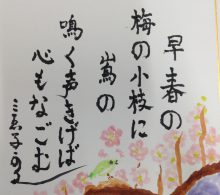 早春の
梅の小枝に
嵩の
鳴く声きけば
心もなごむ